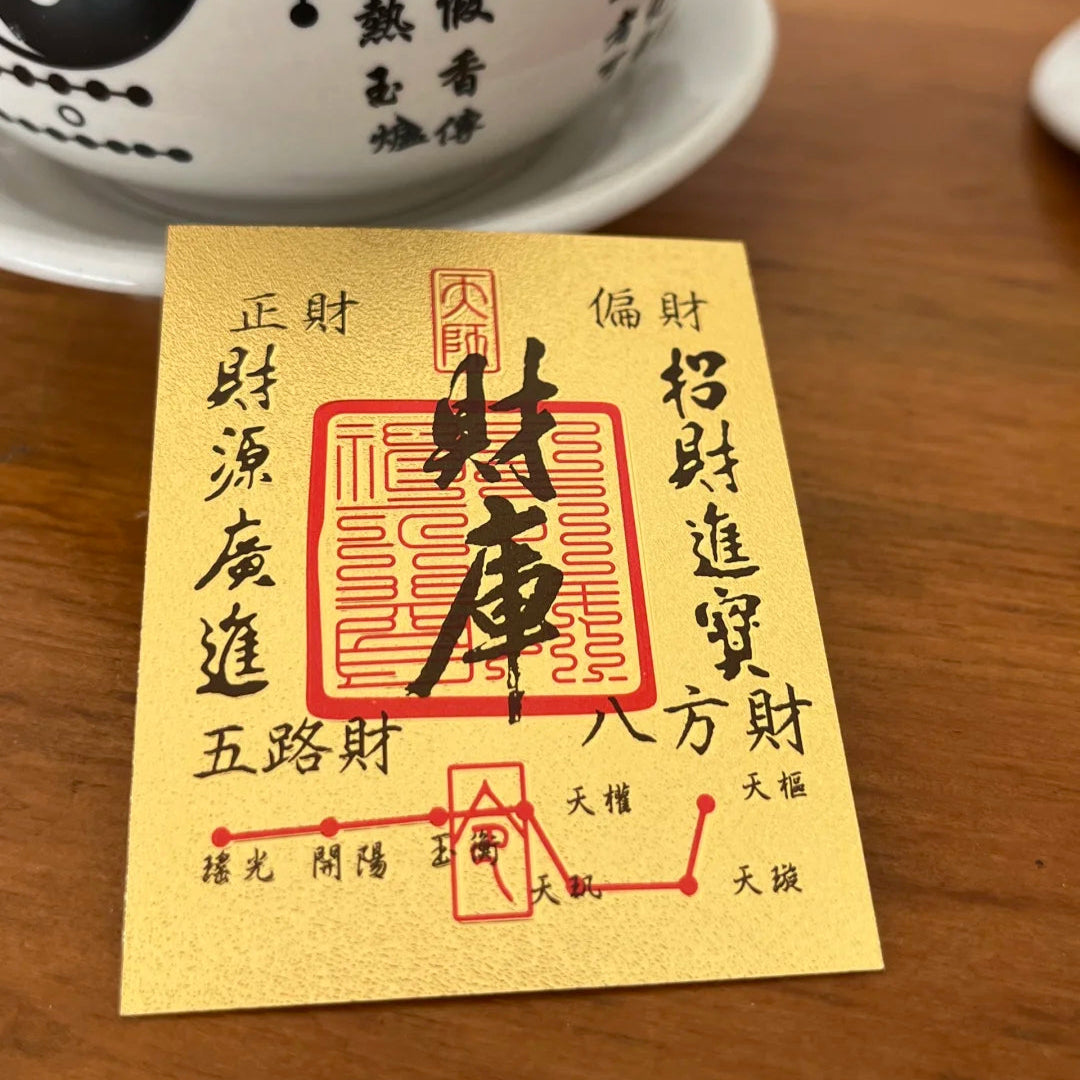 熱玉爐
假香傳
天師
正財
偏財
財庫
招財進寶
財源廣進
五路財
八方財
命
天樞
天璇
天璣
天權
玉衡
開陽
瑤光